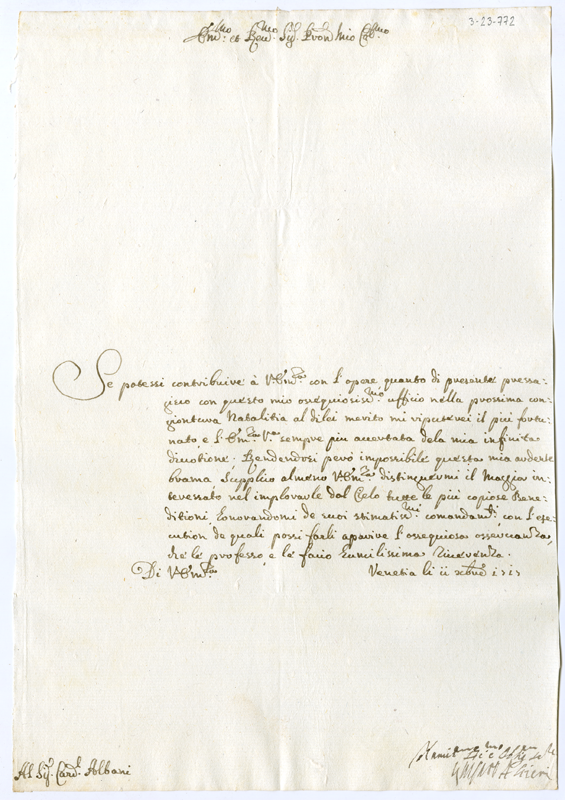 3-23-772
Em.mo et Rev.mo Sig.r Pron. mio Col.mo
Se potessi contribuire à V. Em.za con l'opere quanto di presente pressa-
gisco con questo mio ossequiosiss.mo uffitio nella prossima con-
giontura Natalitia al dilei merito mi riputarei il più fortu-
nato, e l'Em.za V.a sempre piu accertata dela mia infinita
divotione. Rendendosi però impossibile questa mia ardente
brama Supplico almeno V. Em.za distinguermi il Maggior in-
teressato nel implorarle dal Cielo tutte le più copiose Bene-
ditioni, honorandomi de suoi stimatiss.mi comandam.ti, con l'ese-
cution de quali possi farli aparire l'ossequiosa osservanza,
che le professo, e le facio humilissima riverenza.
Di V. Em.za Venetia li 11 xbre
Al Sig.r Card.l Albani